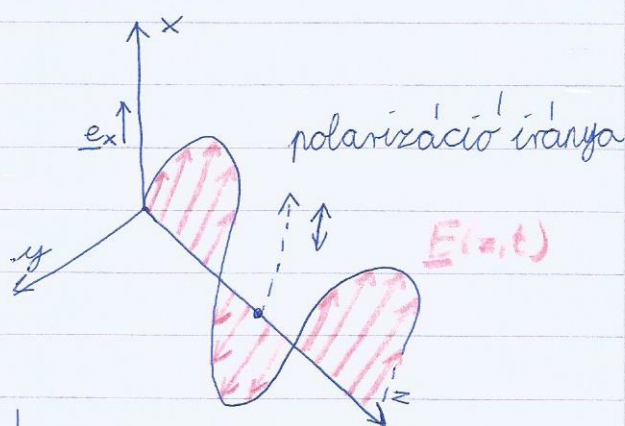 x
e_x
polarizáció iránya
y
E(z,t)
z